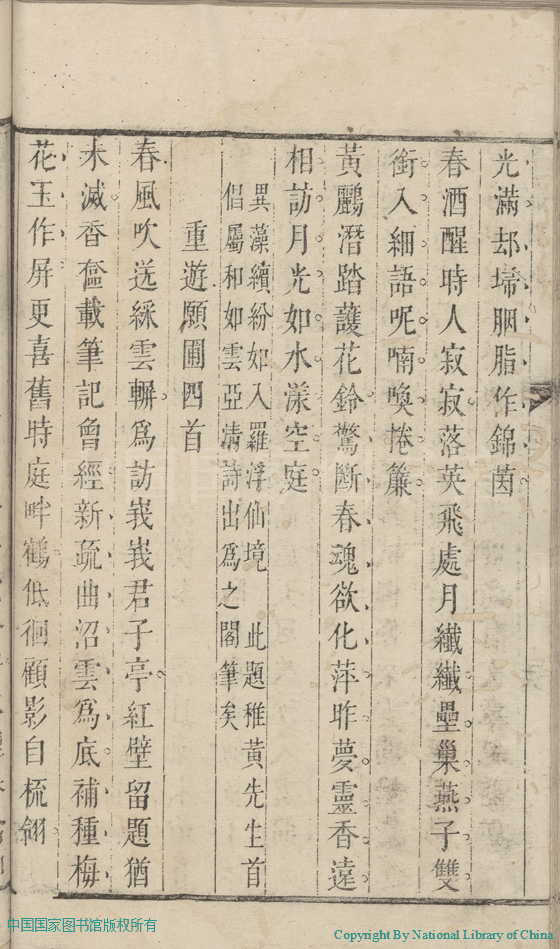 光滿却埽胭脂作錦茵
春酒醒時人寂寂落英飛處月纖纖壘巢燕子雙
銜入細語呢喃喚捲簾
黃鸝潛踏護花鈴驚斷春魂欲化萍昨夢靈香遠
相訪月光如水漾空庭
異藻繽紛如入羅浮仙境 此題稚黃先生首
倡屬和如雲亞清詩出爲之閣筆矣
重遊願圃四首
春風吹送綵雲輧爲訪峩峩君子亭紅壁留題猶
未滅香奩載筆記曾經新疏曲沼雲爲底補種梅
花玉作屏更喜舊時庭畔鶴低徊顧影自梳翎
中国国家图书馆版权所有
Copyright By National Library of China